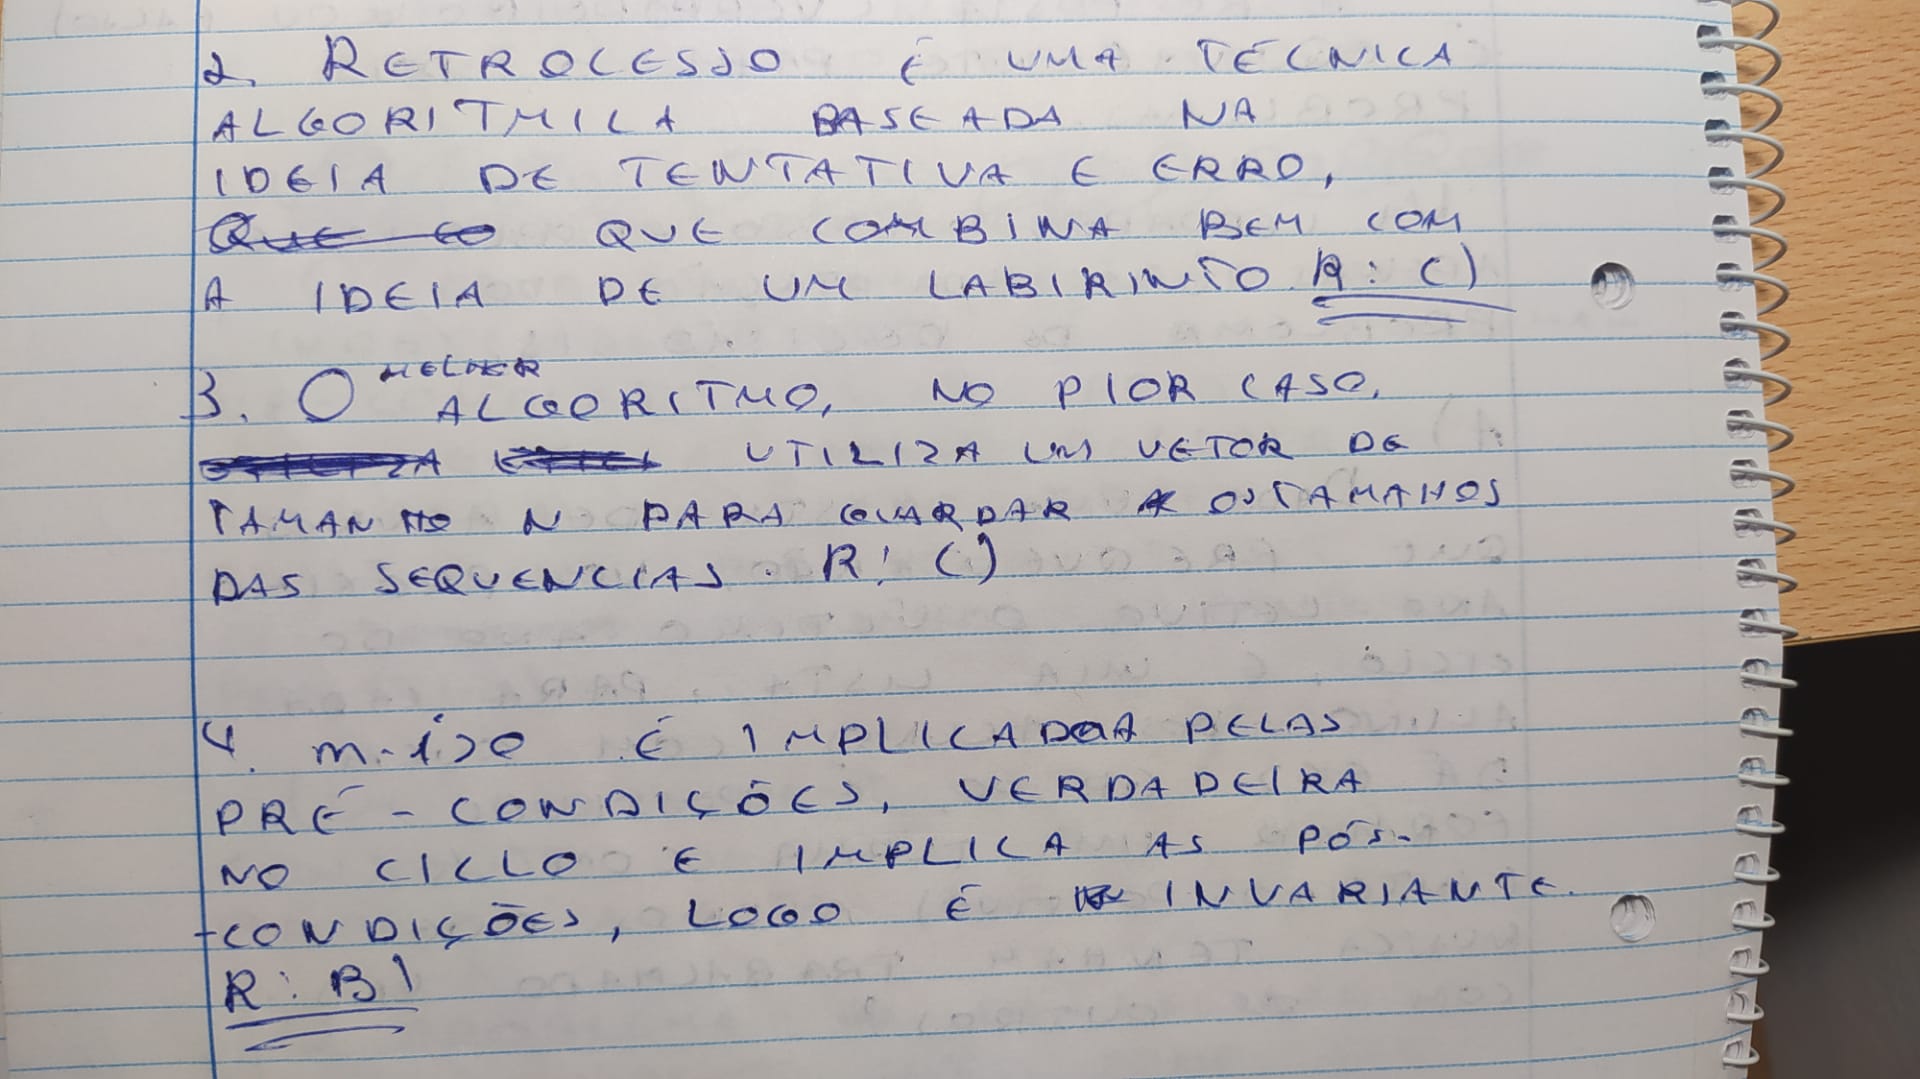 2. RETROCESSO É UMA TÉCNICA
ALGORITMICA BASEADA NA
IDEIA DE TENTATIVA E ERRO,
QUE COMBINA BEM COM
A IDEIA DE UM LABIRINTO R: C)
3. O MELHOR ALGORITMO, NO PIOR CASO,
UTILIZA UM VETOR DE
TAMANHO N PARA GUARDAR OS TAMANHOS
DAS SEQUENCIAS. R: C)
4. m-i>0 É IMPLICADA PELAS
PRÉ-CONDIÇÕES, VERDADEIRA
NO CICLO E IMPLICA AS PÓS-
-CONDIÇÕES, LOGO É INVARIANTE.
R: B)